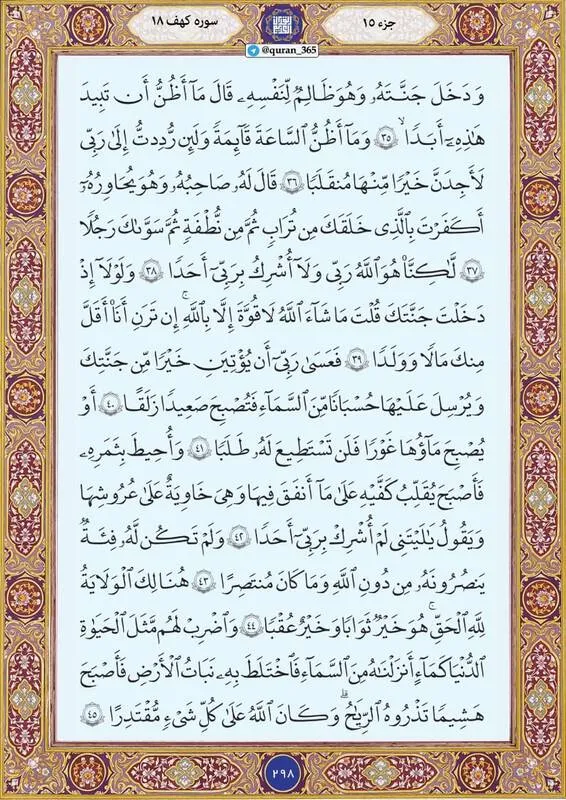 سوره کهف ۱۸
جزء ۱۵
@quran_365
وَدَخَلَ جَنَّتَهُۥ وَهُوَ ظَالِمٌ لِّنَفْسِهِۦ قَالَ مَآ أَظُنُّ أَن تَبِيدَ
هَٰذِهِۦٓ أَبَدًا ۙ ۝۳۵ وَمَآ أَظُنُّ السَّاعَةَ قَآئِمَةً وَلَئِن رُّدِدتُّ إِلَىٰ رَبِّى
لَأَجِدَنَّ خَيْرًا مِّنْهَا مُنقَلَبًا ۝۳۶ قَالَ لَهُۥ صَاحِبُهُۥ وَهُوَ يُحَاوِرُهُۥٓ
أَكَفَرْتَ بِالَّذِى خَلَقَكَ مِن تُرَابٍ ثُمَّ مِن نُّطْفَةٍ ثُمَّ سَوَّىٰكَ رَجُلًا
۝۳۷ لَّٰكِنَّا۠ هُوَ اللَّهُ رَبِّى وَلَآ أُشْرِكُ بِرَبِّىٓ أَحَدًا ۝۳۸ وَلَوْلَآ إِذْ
دَخَلْتَ جَنَّتَكَ قُلْتَ مَا شَآءَ اللَّهُ لَا قُوَّةَ إِلَّا بِاللَّهِ ۚ إِن تَرَنِ أَنَا۠ أَقَلَّ
مِنكَ مَالًا وَوَلَدًا ۝۳۹ فَعَسَىٰ رَبِّىٓ أَن يُؤْتِيَنِ خَيْرًا مِّن جَنَّتِكَ
وَيُرْسِلَ عَلَيْهَا حُسْبَانًا مِّنَ السَّمَآءِ فَتُصْبِحَ صَعِيدًا زَلَقًا ۝۴۰ أَوْ
يُصْبِحَ مَآؤُهَا غَوْرًا فَلَن تَسْتَطِيعَ لَهُۥ طَلَبًا ۝۴۱ وَأُحِيطَ بِثَمَرِهِۦ
فَأَصْبَحَ يُقَلِّبُ كَفَّيْهِ عَلَىٰ مَآ أَنفَقَ فِيهَا وَهِىَ خَاوِيَةٌ عَلَىٰ عُرُوشِهَا
وَيَقُولُ يَٰلَيْتَنِى لَمْ أُشْرِكْ بِرَبِّىٓ أَحَدًا ۝۴۲ وَلَمْ تَكُن لَّهُۥ فِئَةٌ
يَنصُرُونَهُۥ مِن دُونِ اللَّهِ وَمَا كَانَ مُنتَصِرًا ۝۴۳ هُنَالِكَ الْوَلَايَةُ
لِلَّهِ الْحَقِّ ۚ هُوَ خَيْرٌ ثَوَابًا وَخَيْرٌ عُقْبًا ۝۴۴ وَاضْرِبْ لَهُم مَّثَلَ الْحَيَوٰةِ
الدُّنْيَا كَمَآءٍ أَنزَلْنَٰهُ مِنَ السَّمَآءِ فَاخْتَلَطَ بِهِۦ نَبَاتُ الْأَرْضِ فَأَصْبَحَ
هَشِيمًا تَذْرُوهُ الرِّيَٰحُ ۗ وَكَانَ اللَّهُ عَلَىٰ كُلِّ شَىْءٍ مُّقْتَدِرًا ۝۴۵
۲۹۸